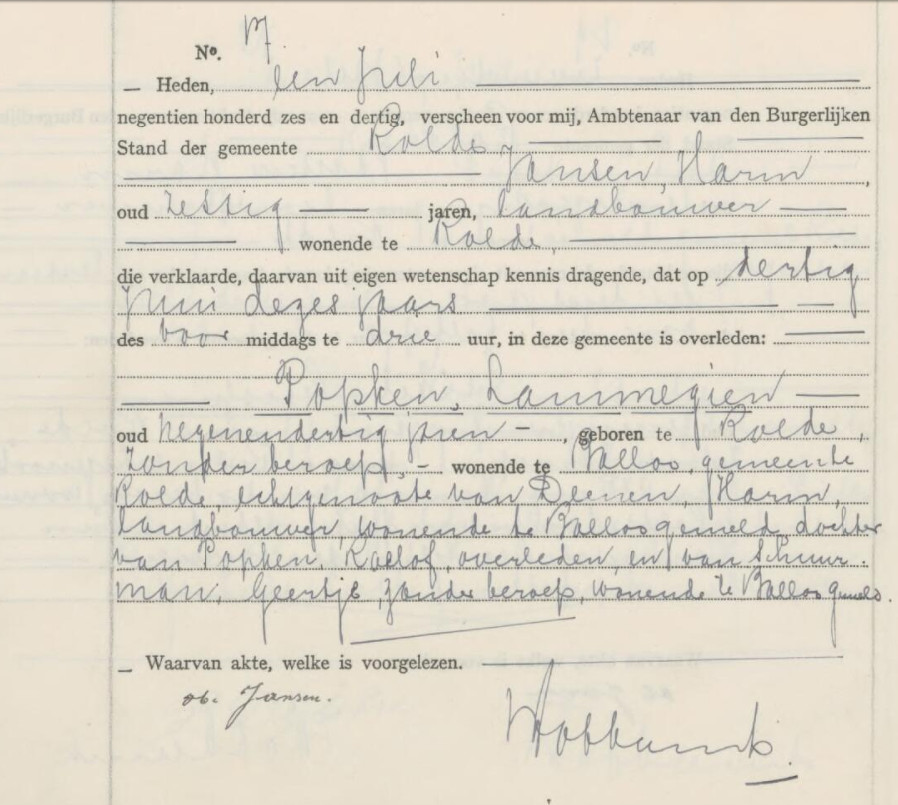 No. 17.
— Heden, een Juli
negentien honderd zes en dertig, verscheen voor mij, Ambtenaar van den Burgerlijken
Stand der gemeente Rolde,
Jansen, Harm,
oud zestig jaren, landbouwer
wonende te Rolde,
die verklaarde, daarvan uit eigen wetenschap kennis dragende, dat op dertig
Juni dezes jaars
des voor middags te drie uur, in deze gemeente is overleden:
Popken, Lammegien
oud negenendertig jaren -, geboren te Rolde,
zonder beroep, - wonende te Balloo gemeente
Rolde, echtgenoote van Deenen, Harm,
landbouwer, wonende te Balloo gemeld, dochter
van Popken, Roelof, overleden, en van Schuur-
man, Geertje, zonder beroep, wonende te Balloo gemeld.
— Waarvan akte, welke is voorgelezen.
Jansen.